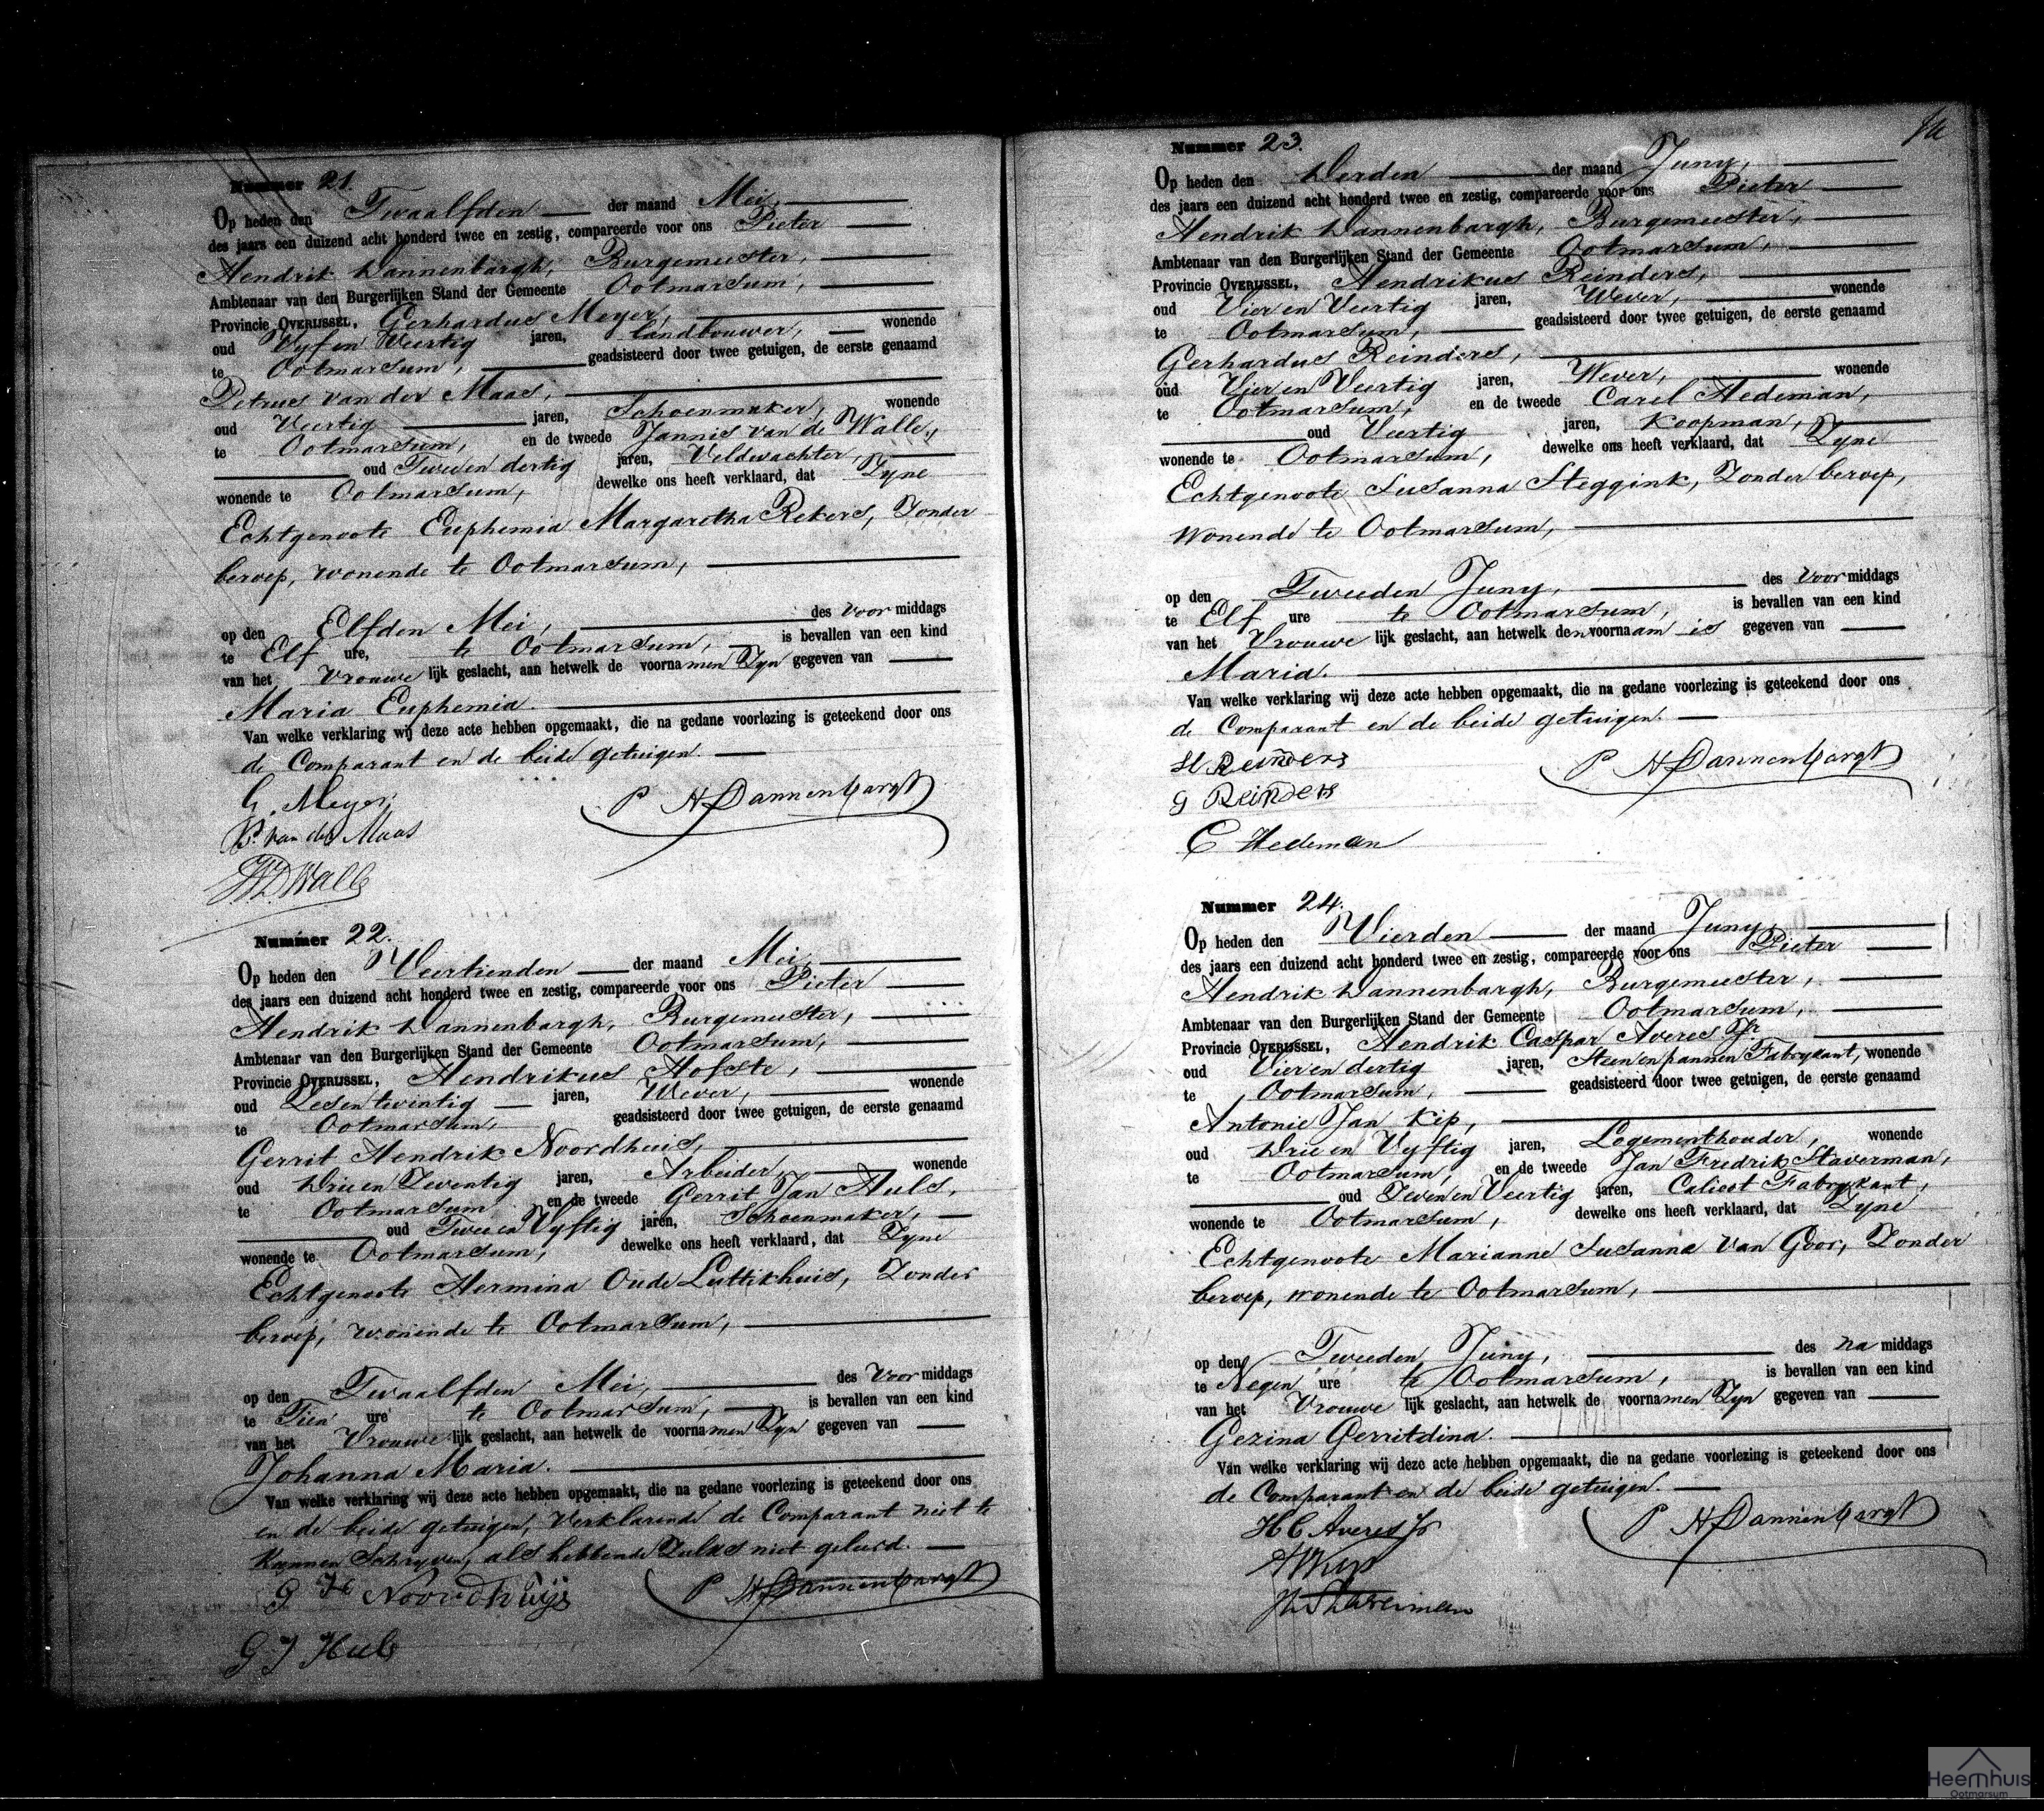 Nummer 21.
Op heden den Twaalfden der maand Mei,
des jaars een duizend acht honderd twee en zestig, compareerde voor ons Pieter
Hendrik Dannenbargh, Burgemeester,
Ambtenaar van den Burgerlijken Stand der Gemeente Ootmarsum,
Provincie OVERIJSSEL, Gerhardus Meyer,
oud Vyf en Veertig jaren, Landbouwer, wonende
te Ootmarsum, geadsisteerd door twee getuigen, de eerste genaamd
Petrus van der Maas,
oud Veertig jaren, Schoenmaker, wonende
te Ootmarsum, en de tweede Jannis van de Walle,
oud Twee en dertig jaren, Veldwachter,
wonende te Ootmarsum, dewelke ons heeft verklaard, dat Zyne
Echtgenoote Euphemia Margaretha Rekers, Zonder
beroep, wonende te Ootmarsum,
op den Elfden Mei, des Voor middags
te Elf ure, te Ootmarsum, is bevallen van een kind
van het Vrouwe lijk geslacht, aan hetwelk de voornamen Zyn gegeven van
Maria Euphemia.
Van welke verklaring wij deze acte hebben opgemaakt, die na gedane voorlezing is geteekend door ons
de Comparant en de beide getuigen.
G. Meyer
P H Dannenbargh
P. van der Maas
Walle
Nummer 22.
Op heden den Veertienden der maand Mei,
des jaars een duizend acht honderd twee en zestig, compareerde voor ons Pieter
Hendrik Dannenbargh, Burgemeester,
Ambtenaar van den Burgerlijken Stand der Gemeente Ootmarsum,
Provincie OVERIJSSEL, Hendrikus Hofste,
oud Zes en twentig jaren, Wever, wonende
te Ootmarsum, geadsisteerd door twee getuigen, de eerste genaamd
Gerrit Hendrik Noordhuis,
oud Drie en Zeventig jaren, Arbeider, wonende
te Ootmarsum en de tweede Gerrit Jan Huls,
oud Twee en Vyftig jaren, Schoenmaker,
wonende te Ootmarsum, dewelke ons heeft verklaard, dat Zyne
Echtgenoote Hermina Oude Luttikhuis, Zonder
beroep, wonende te Ootmarsum,
op den Twaalfden Mei, des Voor middags
te Tien ure te Ootmarsum, is bevallen van een kind
van het Vrouwe lijk geslacht, aan hetwelk de voornamen Zyn gegeven van
Johanna Maria.
Van welke verklaring wij deze acte hebben opgemaakt, die na gedane voorlezing is geteekend door ons
en de beide getuigen, Verklarende de Comparant niet te
Kunnen Schryven, als hebbende Zulks niet geleerd.
G H Noordhuijs
P H Dannenbargh
G J Huls
Nummer 23.
Op heden den Derden der maand Juny,
des jaars een duizend acht honderd twee en zestig, compareerde voor ons Pieter
Hendrik Dannenbargh, Burgemeester,
Ambtenaar van den Burgerlijken Stand der Gemeente Ootmarsum,
Provincie OVERIJSSEL, Hendrikus Reinders,
oud Vier en Veertig jaren, Wever, wonende
te Ootmarsum, geadsisteerd door twee getuigen, de eerste genaamd
Gerhardus Reinders,
oud Vier en Veertig jaren, Wever, wonende
te Ootmarsum, en de tweede Carel Hedeman,
oud Veertig jaren, Koopman,
wonende te Ootmarsum, dewelke ons heeft verklaard, dat Zyne
Echtgenoote Susanna Steggink, Zonder beroep,
wonende te Ootmarsum,
op den Tweeden Juny, des Voor middags
te Elf ure te Ootmarsum, is bevallen van een kind
van het Vrouwe lijk geslacht, aan hetwelk den voornaam is gegeven van
Maria.
Van welke verklaring wij deze acte hebben opgemaakt, die na gedane voorlezing is geteekend door ons
de Comparant en de beide getuigen.
H Reinders
P H Dannenbargh
G Reinders
C Hedeman
Nummer 24.
Op heden den Vierden der maand Juny,
des jaars een duizend acht honderd twee en zestig, compareerde voor ons Pieter
Hendrik Dannenbargh, Burgemeester,
Ambtenaar van den Burgerlijken Stand der Gemeente Ootmarsum,
Provincie OVERIJSSEL, Hendrik Caspar Averes Jr
oud Vier en dertig jaren, Steen en pannen Fabrykant, wonende
te Ootmarsum, geadsisteerd door twee getuigen, de eerste genaamd
Antonie Jan Kip,
oud Drie en Vyftig jaren, Logementhouder, wonende
te Ootmarsum, en de tweede Jan Fredrik Staverman,
oud Zeven en Veertig jaren, Calicot Fabrykant,
wonende te Ootmarsum, dewelke ons heeft verklaard, dat Zyne
Echtgenoote Marianne Susanna van Goor, Zonder
beroep, wonende te Ootmarsum,
op den Tweeden Juny, des na middags
te Negen ure te Ootmarsum, is bevallen van een kind
van het Vrouwe lijk geslacht, aan hetwelk de voornamen Zyn gegeven van
Gezina Gerritdina.
Van welke verklaring wij deze acte hebben opgemaakt, die na gedane voorlezing is geteekend door ons
de Comparant en de beide getuigen.
H C Averes Jr
P H Dannenbargh
Heemhuis
Ootmarsum